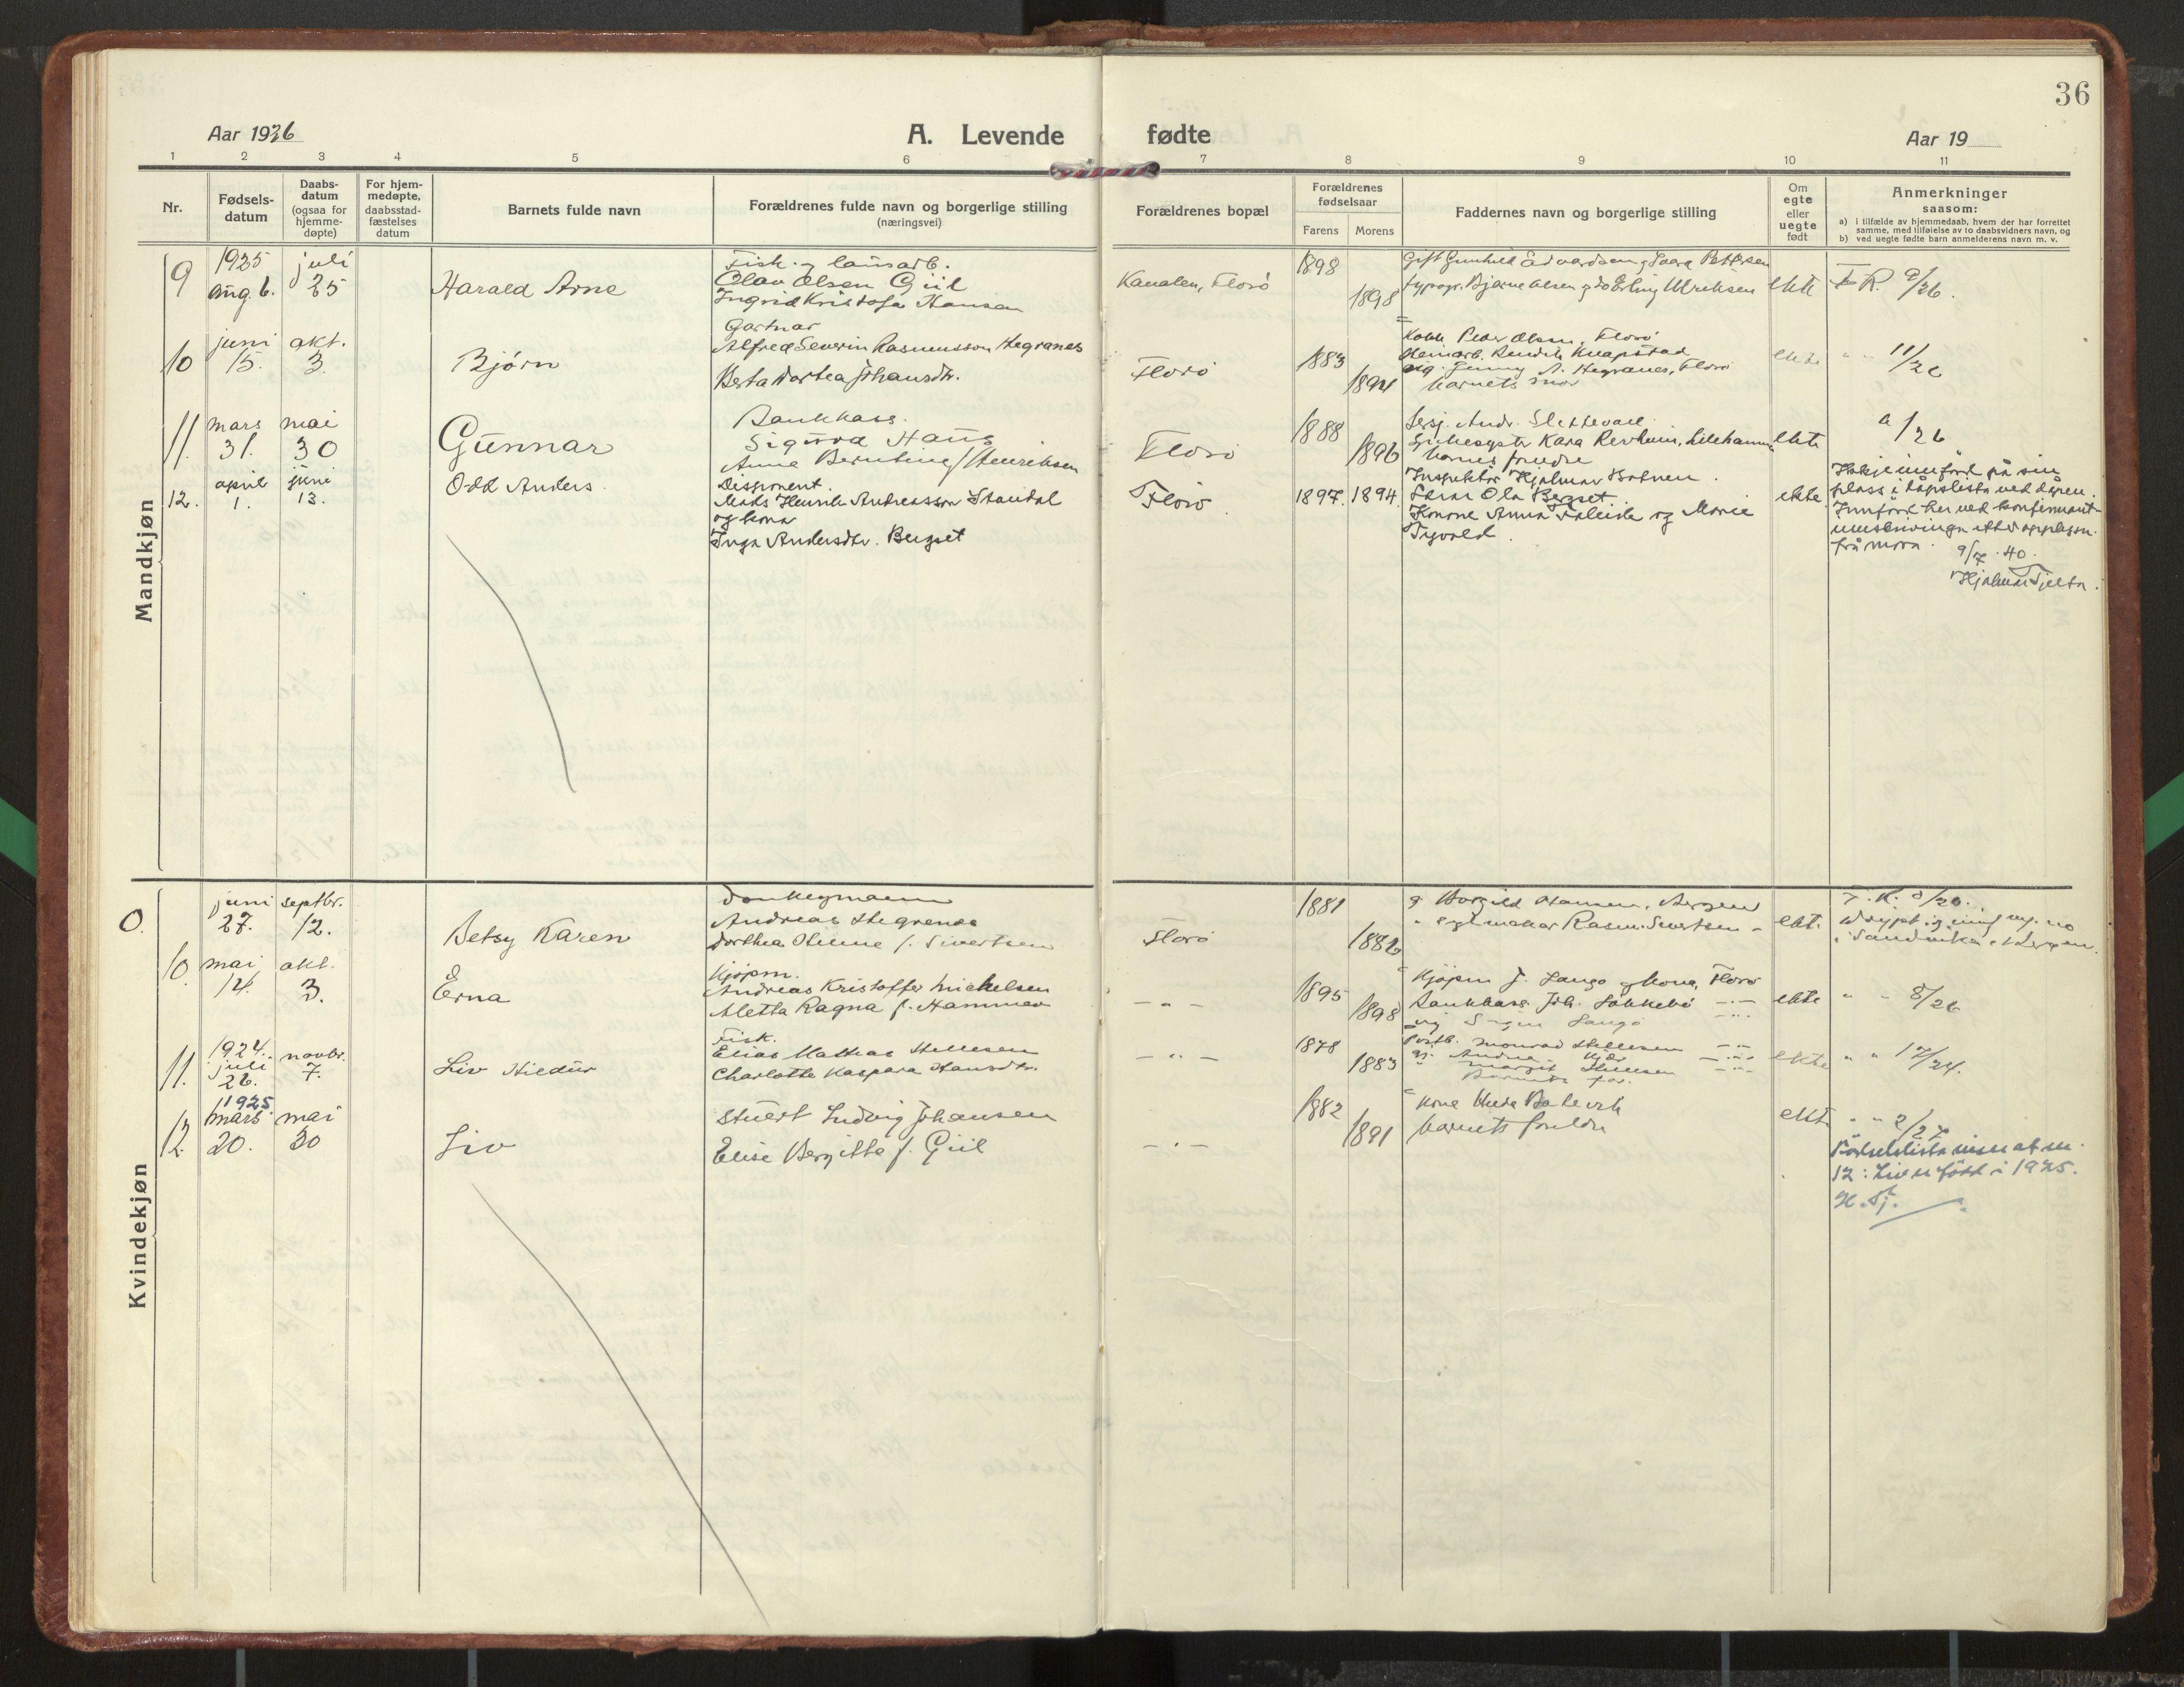 36
Aar 1926
A. Levende fødte
Aar 19
1 2 3 4 5 6 7 8 9 10 11
Nr.
Fødsels-
datum
Daabs-
datum
(ogsaa for
hjemme-
døpte)
For hjem-
medøpte,
daabsstad-
fæstelses
datum
Barnets fulde navn
Forældrenes fulde navn og borgerlige stilling
(næringsvei)
Forældrenes bopæl
Forældrenes
fødselsaar
Farens Morens
Faddernes navn og borgerlige stilling
Om
egte
eller
uegte
født
Anmerkninger
saasom:
a) i tilfælde av hjemmedaab, hvem der har forrettet
samme, med tilføielse av to daabsvidners navn, og
b) ved uegte fødte barn anmelderens navn m. v.
Mandkjøn
9
1925
aug. 6.
juli
25
Harald Arne
Fisk. og lausarb.
Olav Olsen Giil
Ingrid Kristofa Hansen
Kanalen, Florø
1898
1898
Gift Gunhild Edvardsen og Saara Pettersen
typogr. Bjarne Olsen og do Erling Ulriksen
ekte
F. R. 9/26.
10
juni
15.
okt.
3.
Bjørn
Gartnar
Alfred Severin Rasmusson Hegranes
Berta Dortea Johansdtr.
Florø
1883
1894
Peder Olsen, Florø
Knapstad
Jenny A. Hegranes, Florø
barnets mor
ekte
" " 11/26
11.
mars
31.
mai
30
Gunnar
Bankkass.
Sigurd Haus
Anna Berntine f. Henriksen
Florø
1888
1896
Lersj. Andr. Slettevall
Sykesystr Kara Revheim, Lillehammer
barnets foreldre
ekte
a/26
12.
april
1.
juni
13.
Odd Anders.
Disponent.
Mads Henrik Andreasson Standal
og kona
Inga Andersdtr. Berget
Florø.
1897. 1894.
Inspektør Hjalmar Botnen.
Lærar Ola Bergset.
Konone Anna Faleide og Marie
Tigvald.
ekte
Ikkje innført på sin
plass i dåpslista ved dåpen.
Innført her ved konfirmant-
innskrivinga etter opplysn.
frå mora. 9/7. 40.
Hjalmar Tjelta.
Kvindekjøn
O.
juni
27.
septbr.
12.
Betsy Karen
Donkeymann
Andreas Hegrenes
Dorthea Oline f. Sivertsen
Florø
1881
1886
g. Borgild Hansen, Bergen
" seglmakar Rasm. Sivertsen "
ekte
F. R. 8/26.
Sandvika, Bergen.
10.
mai
14.
okt.
3.
Erna
Kjøpm.
Andreas Kristoffer Mickelsen
Aletta Ragna f. Hammer
— " —
1895
1898
Kjøpm J. Lango og kona, Florø
Bankkass. Joh. Løkkebø — " —
ug. Signe Langø — " —
ekte
" " 8/26
11.
1924.
juli
26.
novbr.
7.
Liv Hildur
Fisk.
Elias Mathias Hellesen
Charlotte Kaspara Hansdtr.
— " —
1878
1883
Postb. Monrad Hellesen — " —
Margit Hellesen — " —
Barnets far.
ekte
" " 12/24.
12.
1925.
mars
20.
mai
30
Liv
Stuert Ludvig Johansen
Elise Bergitte f. Giil
— " —
1882
1891
Kona Huda Batevik
barnets foreldre
ekte
" " 2/27
Fødselslista viser at nr.
12: Liv er født i 1925.
H. Tj.